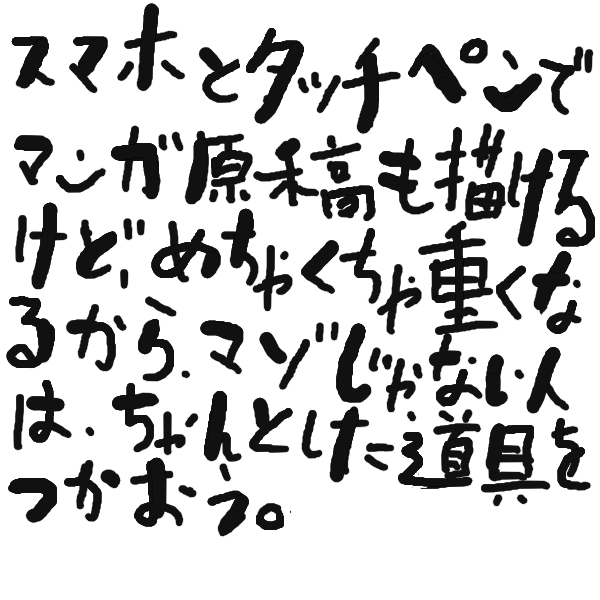 スマホとタッチペンで
マンガ原稿も描ける
けど、めちゃくちゃ重くな
るから、マゾじゃない人
は、ちゃんとした道具を
つかおう。